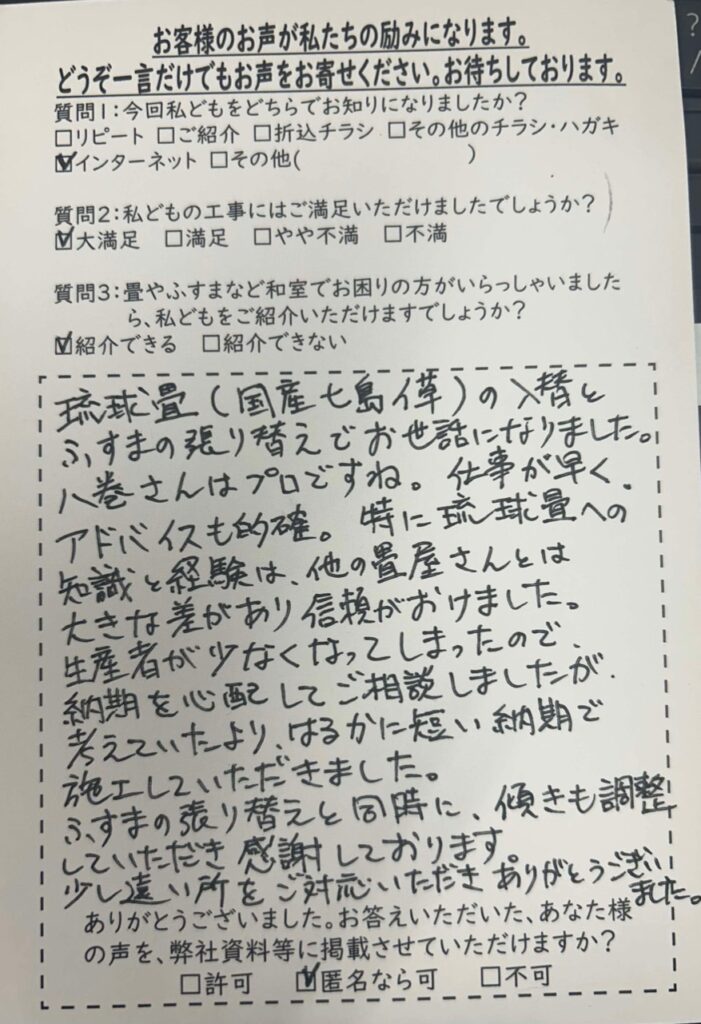 お客様のお声が私たちの励みになります。
どうぞ一言だけでもお声をお寄せください。お待ちしております。
質問1:今回私どもをどちらでお知りになりましたか?
□リピート □ご紹介 □折込チラシ □その他のチラシ・ハガキ
☑インターネット □その他( )
質問2:私どもの工事にはご満足いただけましたでしょうか?
☑大満足 □満足 □やや不満 □不満
質問3:畳やふすまなど和室でお困りの方がいらっしゃいました
ら、私どもをご紹介いただけますでしょうか?
☑紹介できる □紹介できない
琉球畳(国産七島イ草)の入替と
ふすまの張り替えでお世話になりました。
八巻さんはプロですね。仕事が早く、
アドバイスも的確。特に琉球畳への
知識と経験は、他の畳屋さんとは
大きな差があり信頼がおけました。
生産者が少なくなってしまったので、
納期を心配してご相談しましたが、
考えていたより、はるかに短い納期で
施工していただきました。
ふすまの張り替えと同時に、傾きも調整
していただき感謝しております。
少し遠い所をご対応いただきありがとうござい
ました。
ありがとうございました。お答えいただいた、あなた様
の声を、弊社資料等に掲載させていただけますか?
□許可 ☑匿名なら可 □不可